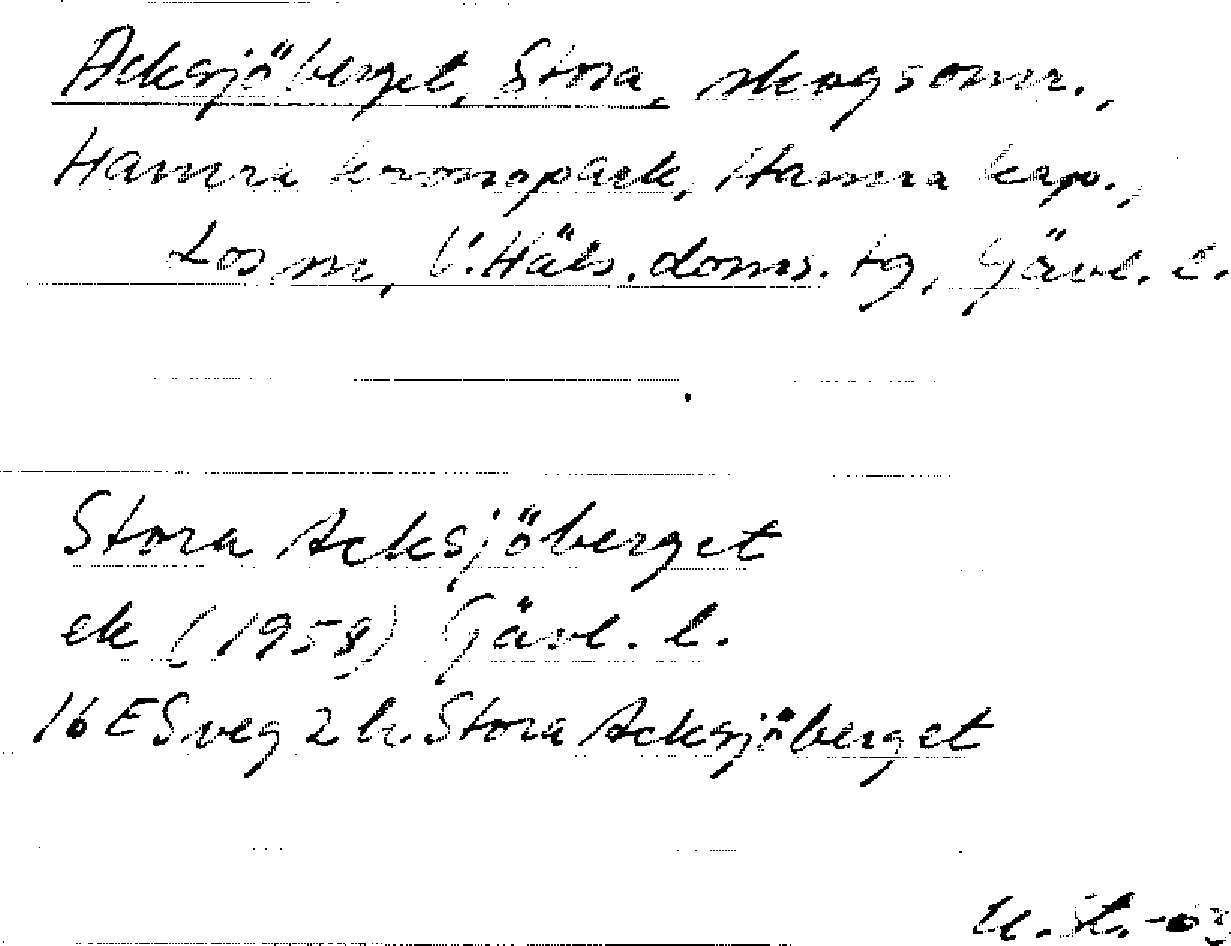 Acksjöberget, Stora, skogsomr.,
Hamra kronopark, Hamra kap.,
Los sn, V. Häls. doms. tg, Gävl. l.
Stora Acksjöberget
ek (1958) Gävl. l.
16E Sveg 2 h. Stora Acksjöberget